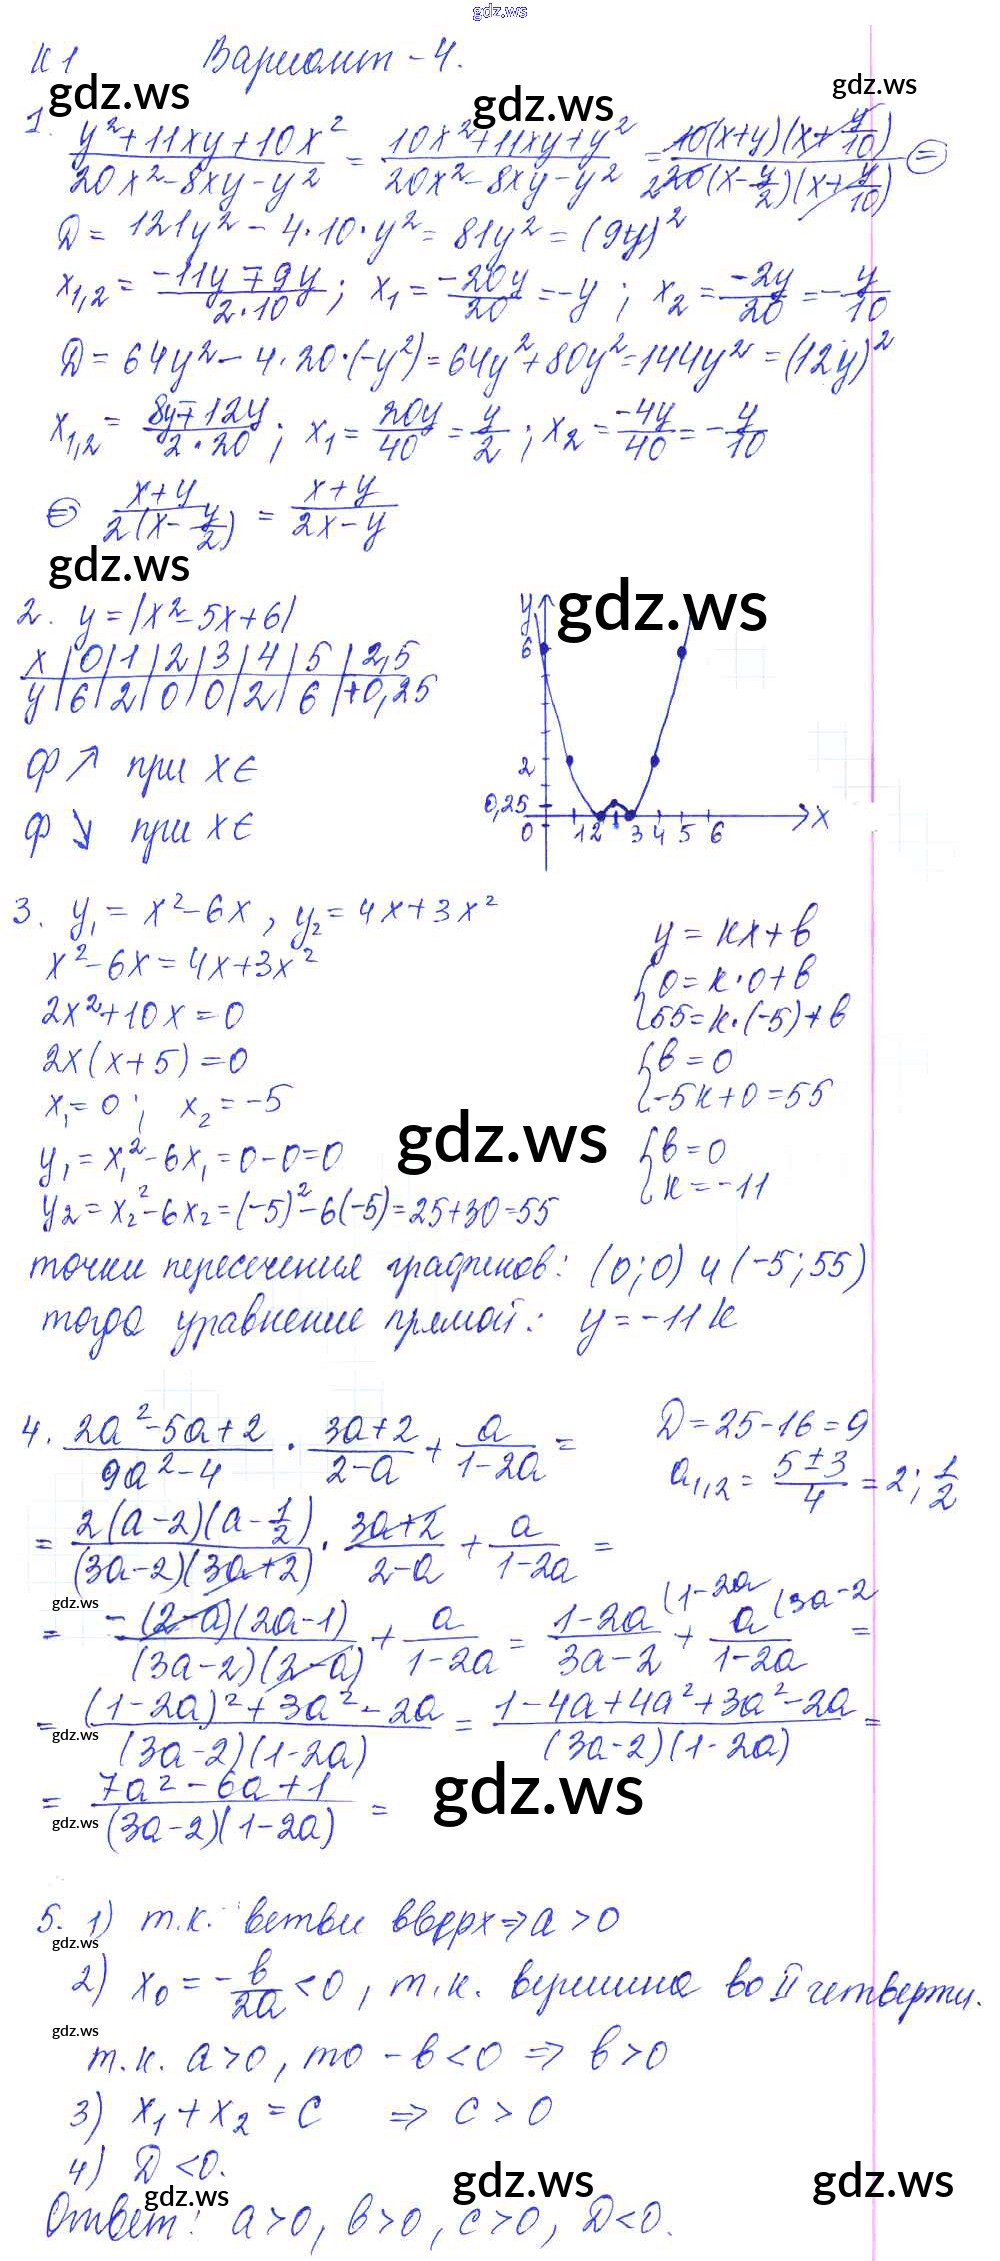 gdz.ws
К1 Вариант - 4.
gdz.ws gdz.ws gdz.ws
1. (y²+11xy+10x²)/(20x²-8xy-y²) = (10x²+11xy+y²)/(20x²-8xy-y²) = 10(x+y)(x+y/10)/2 20(x-y/2)(x+y/10) ⊜
D = 121y² - 4·10·y² = 81y² = (9y)²
x₁,₂ = (-11y∓9y)/(2·10); x₁ = -20y/20 = -y; x₂ = -2y/20 = -y/10
D = 64y² - 4·20·(-y²) = 64y²+80y² = 144y² = (12y)²
x₁,₂ = (8y∓12y)/(2·20); x₁ = 20y/40 = y/2; x₂ = -4y/40 = -y/10
⊜ (x+y)/(2(x-y/2)) = (x+y)/(2x-y)
gdz.ws
2. y = |x²-5x+6|
gdz.ws
x | 0 | 1 | 2 | 3 | 4 | 5 | 2,5
y | 6 | 2 | 0 | 0 | 2 | 6 | +0,25
ф ↗ при x ∈
ф ↘ при x ∈
y
6
2
0,25
0 1 2 3 4 5 6 x
3. y₁ = x²-6x, y₂ = 4x+3x²
x²-6x = 4x+3x²
2x²+10x = 0
2x(x+5) = 0
x₁ = 0; x₂ = -5
y₁ = x₁²-6x₁ = 0-0 = 0
y2 = x₂²-6x₂ = (-5)²-6(-5) = 25+30 = 55
y = kx+b
{0 = k·0+b
{55 = k·(-5)+b
{b = 0
{-5k+0 = 55
{b = 0
{k = -11
gdz.ws
точки пересечения графиков: (0;0) и (-5;55)
тогда уравнение прямой: y = -11k
4. (2a²-5a+2)/(9a²-4) · (3a+2)/(2-a) + a/(1-2a) =
D = 25-16 = 9
a₁,₂ = (5±3)/4 = 2; 1/2
= 2(a-2)(a-1/2)/((3a-2)(3a+2)) · (3a+2)/(2-a) + a/(1-2a) =
gdz.ws
= -(2-a)(2a-1)/((3a-2)(2-a)) + a/(1-2a) = (1-2a)/(3a-2) (1-2a + a/(1-2a) (3a-2 =
= ((1-2a)²+3a²-2a)/((3a-2)(1-2a)) = (1-4a+4a²+3a²-2a)/((3a-2)(1-2a)) =
gdz.ws
= (7a²-6a+1)/((3a-2)(1-2a)) =
gdz.ws
gdz.ws
5. 1) т.к. ветви вверх ⇒ a > 0
gdz.ws
2) x₀ = -b/2a < 0, т.к. вершина во II четверти.
gdz.ws
т.к. a>0, то -b<0 ⇒ b>0
3) x₁+x₂ = c ⇒ c > 0
4) D < 0.
gdz.ws gdz.ws gdz.ws
Ответ: a>0, b>0, c>0, D<0.